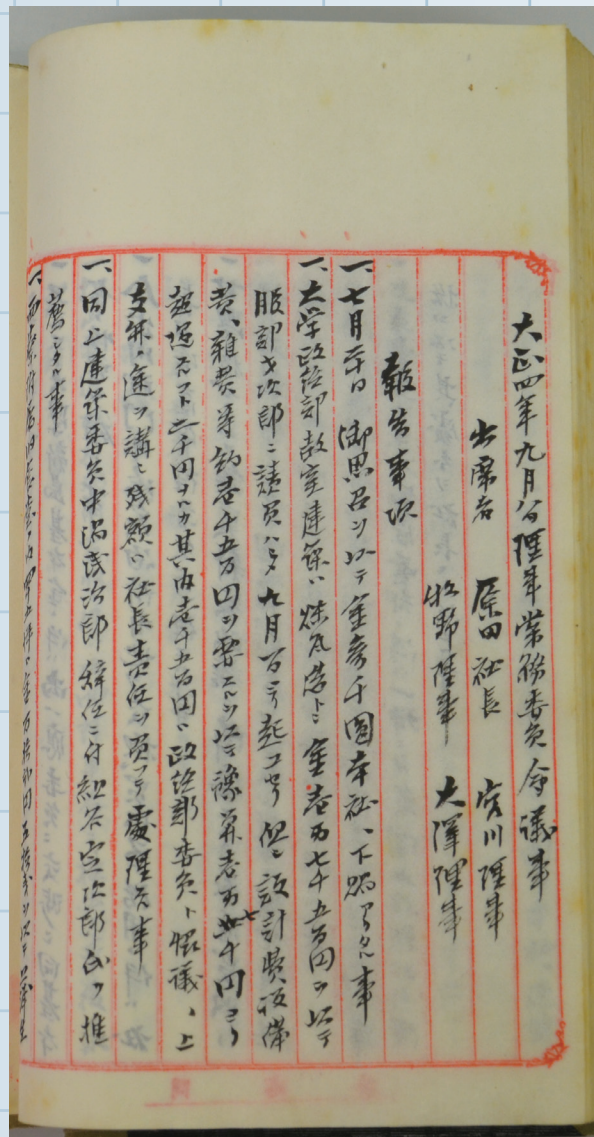 大正四年九月八日理事常務委員会議事
出席者 原田社長 宮川理事
牧野理事 大澤理事
報告事項
一、七月三十日 御思召ヲ以テ金参千圓本社ヘ下賜アリタル事
一、大学政治部教室建築ハ煉瓦造トシ金壱万七千五百円ヲ以テ
服部才次郎ニ請負ハシメ九月一日ヨリ起工セリ 但シ設計費設備
費、雑費等約壱千五百円ヲ要スルヲ以テ豫算壱万七千円ヨリ
超過スルコト二千円ナルカ其内壱千五百円ハ政治部委員ト協議ノ上
支弁ノ途ヲ講シ残額ハ社長責任ヲ負フテ處理スル事
一、同上建築委員中湯浅治郎 辞任ニ付 紀 定次郎氏ヲ推
薦シタル事
一、